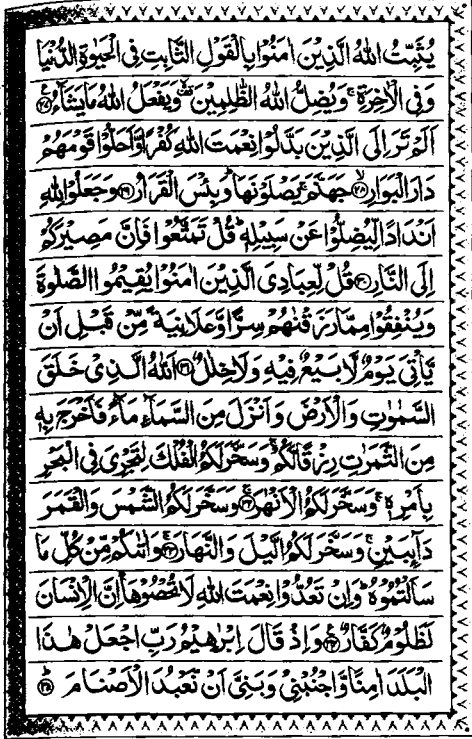 يُثَبِّتُ اللهُ الَّذِيْنَ اٰمَنُوْا بِالْقَوْلِ الثَّابِتِ فِي الْحَيٰوةِ الدُّنْيَا
وَفِي الْاٰخِرَةِ ۚ وَيُضِلُّ اللهُ الظّٰلِمِيْنَ ۙ وَيَفْعَلُ اللهُ مَا يَشَآءُ ۧ
اَلَمْ تَرَ اِلَى الَّذِيْنَ بَدَّلُوْا نِعْمَتَ اللهِ كُفْرًا وَّاَحَلُّوْا قَوْمَهُمْ
دَارَ الْبَوَارِ ۙ‏﴿۲۸﴾ جَهَنَّمَ ۚ يَصْلَوْنَهَا ؕ وَبِئْسَ الْقَرَارُ ﴿۲۹﴾ وَجَعَلُوْا لِلّٰهِ
اَنْدَادًا لِّيُضِلُّوْا عَنْ سَبِيْلِهٖ ؕ قُلْ تَمَتَّعُوْا فَاِنَّ مَصِيْرَكُمْ
اِلَى النَّارِ ﴿۳۰﴾ قُلْ لِّعِبَادِيَ الَّذِيْنَ اٰمَنُوْا يُقِيْمُوا الصَّلٰوةَ
وَيُنْفِقُوْا مِمَّا رَزَقْنٰهُمْ سِرًّا وَّعَلَانِيَةً مِّنْ قَبْلِ اَنْ
يَّاْتِيَ يَوْمٌ لَّا بَيْعٌ فِيْهِ وَلَا خِلٰلٌ ﴿۳۱﴾ اَللهُ الَّذِيْ خَلَقَ
السَّمٰوٰتِ وَالْاَرْضَ وَاَنْزَلَ مِنَ السَّمَآءِ مَآءً فَاَخْرَجَ بِهٖ
مِنَ الثَّمَرٰتِ رِزْقًا لَّكُمْ ۚ وَسَخَّرَ لَكُمُ الْفُلْكَ لِتَجْرِيَ فِي الْبَحْرِ
بِاَمْرِهٖ ۚ وَسَخَّرَ لَكُمُ الْاَنْهٰرَ ﴿۳۲﴾ وَسَخَّرَ لَكُمُ الشَّمْسَ وَالْقَمَرَ
دَآئِبَيْنِ ۚ وَسَخَّرَ لَكُمُ الَّيْلَ وَالنَّهَارَ ﴿۳۳﴾ وَاٰتٰىكُمْ مِّنْ كُلِّ مَا
سَاَلْتُمُوْهُ ؕ وَاِنْ تَعُدُّوْا نِعْمَتَ اللهِ لَا تُحْصُوْهَا ؕ اِنَّ الْاِنْسَانَ
لَظَلُوْمٌ كَفَّارٌ ﴿۳۴﴾ وَاِذْ قَالَ اِبْرٰهِيْمُ رَبِّ اجْعَلْ هٰذَا
الْبَلَدَ اٰمِنًا وَّاجْنُبْنِيْ وَبَنِيَّ اَنْ نَّعْبُدَ الْاَصْنَامَ ﴿۳۵﴾